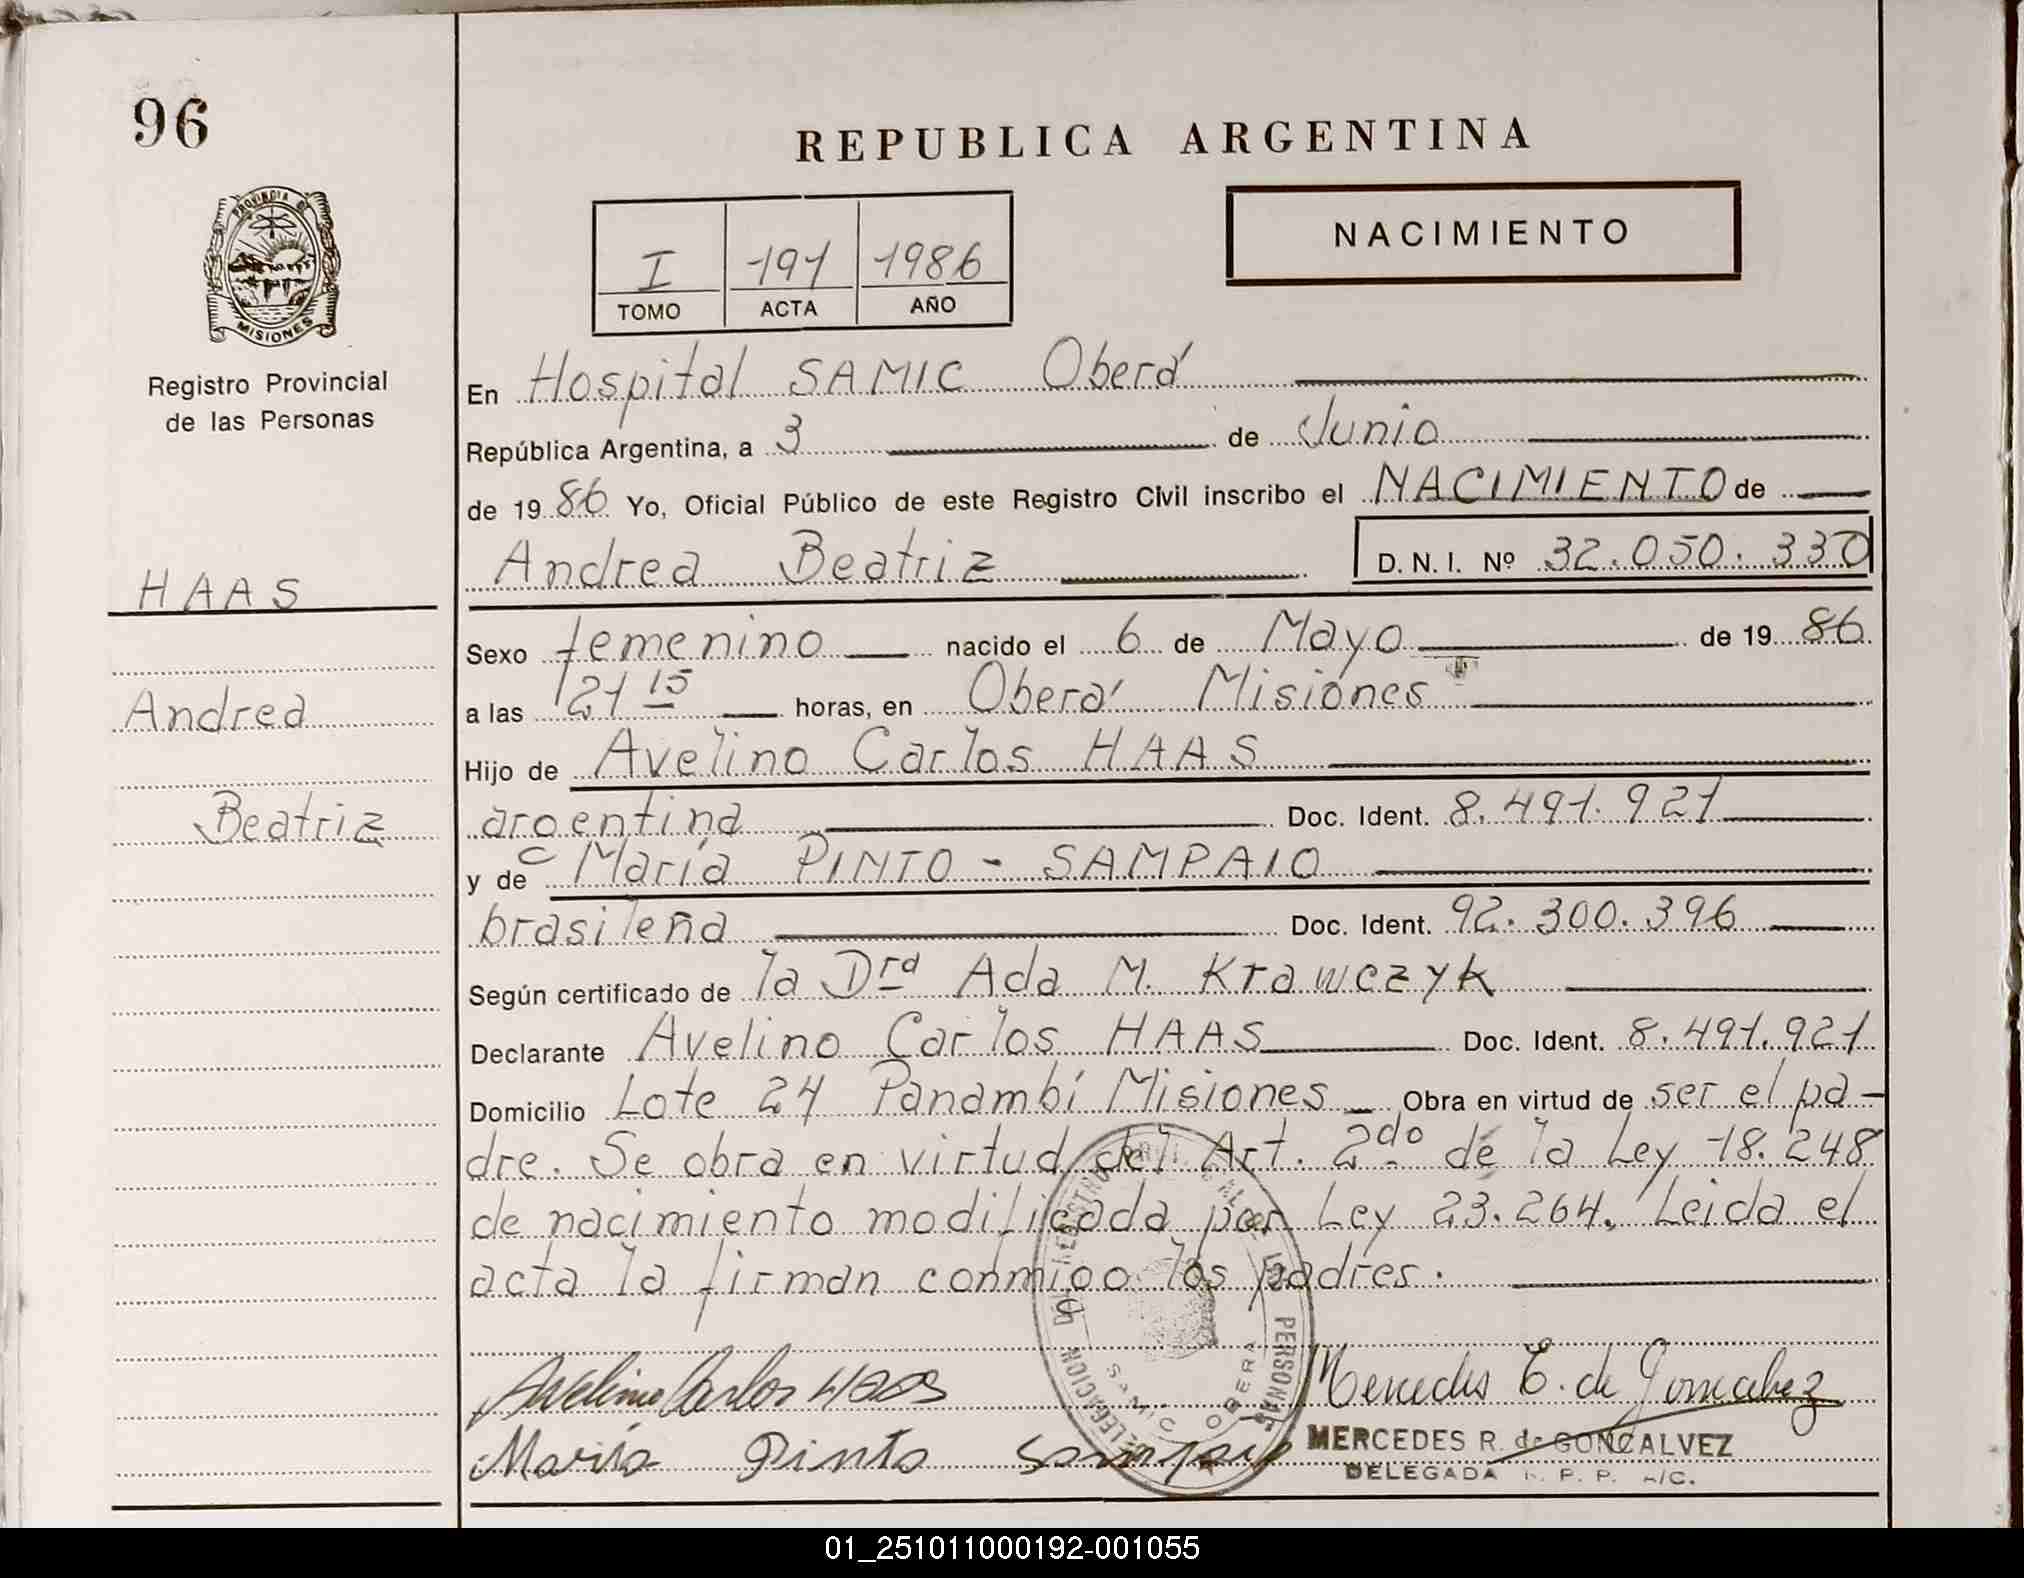 96
REPUBLICA ARGENTINA
PROVINCIA DE
MISIONES
Registro Provincial
de las Personas
I 191 1986
TOMO ACTA AÑO
NACIMIENTO
En Hospital SAMIC Oberá
República Argentina, a 3 de Junio
de 19 86 Yo, Oficial Público de este Registro Civil inscribo el NACIMIENTO de
Andrea Beatriz D. N. I. Nº 32.050.330
HAAS
Andrea
Beatriz
Sexo femenino nacido el 6 de Mayo de 19 86
a las 21 15 horas, en Oberá Misiones
Hijo de Avelino Carlos HAAS
argentina Doc. Ident. 8.491.921
y de María PINTO - SAMPAIO
brasileña Doc. Ident. 92.300.396
Según certificado de la Dra Ada M. Krawczyk
Declarante Avelino Carlos HAAS Doc. Ident. 8.491.921
Domicilio Lote 24 Panambí Misiones Obra en virtud de ser el pa-
dre. Se obra en virtud del Art. 2do de la Ley 18.248
de nacimiento modificada por Ley 23.264. Leida el
acta la firman conmigo los padres.
Avelino Carlos HAAS
María Pinto Sampaio
Mercedes de Goncalvez
MERCEDES R. de GONCALVEZ
DELEGADA R. P. P. A/C.
DELEGACION PERSONAS
SAMIC OBERA
01_251011000192-001055